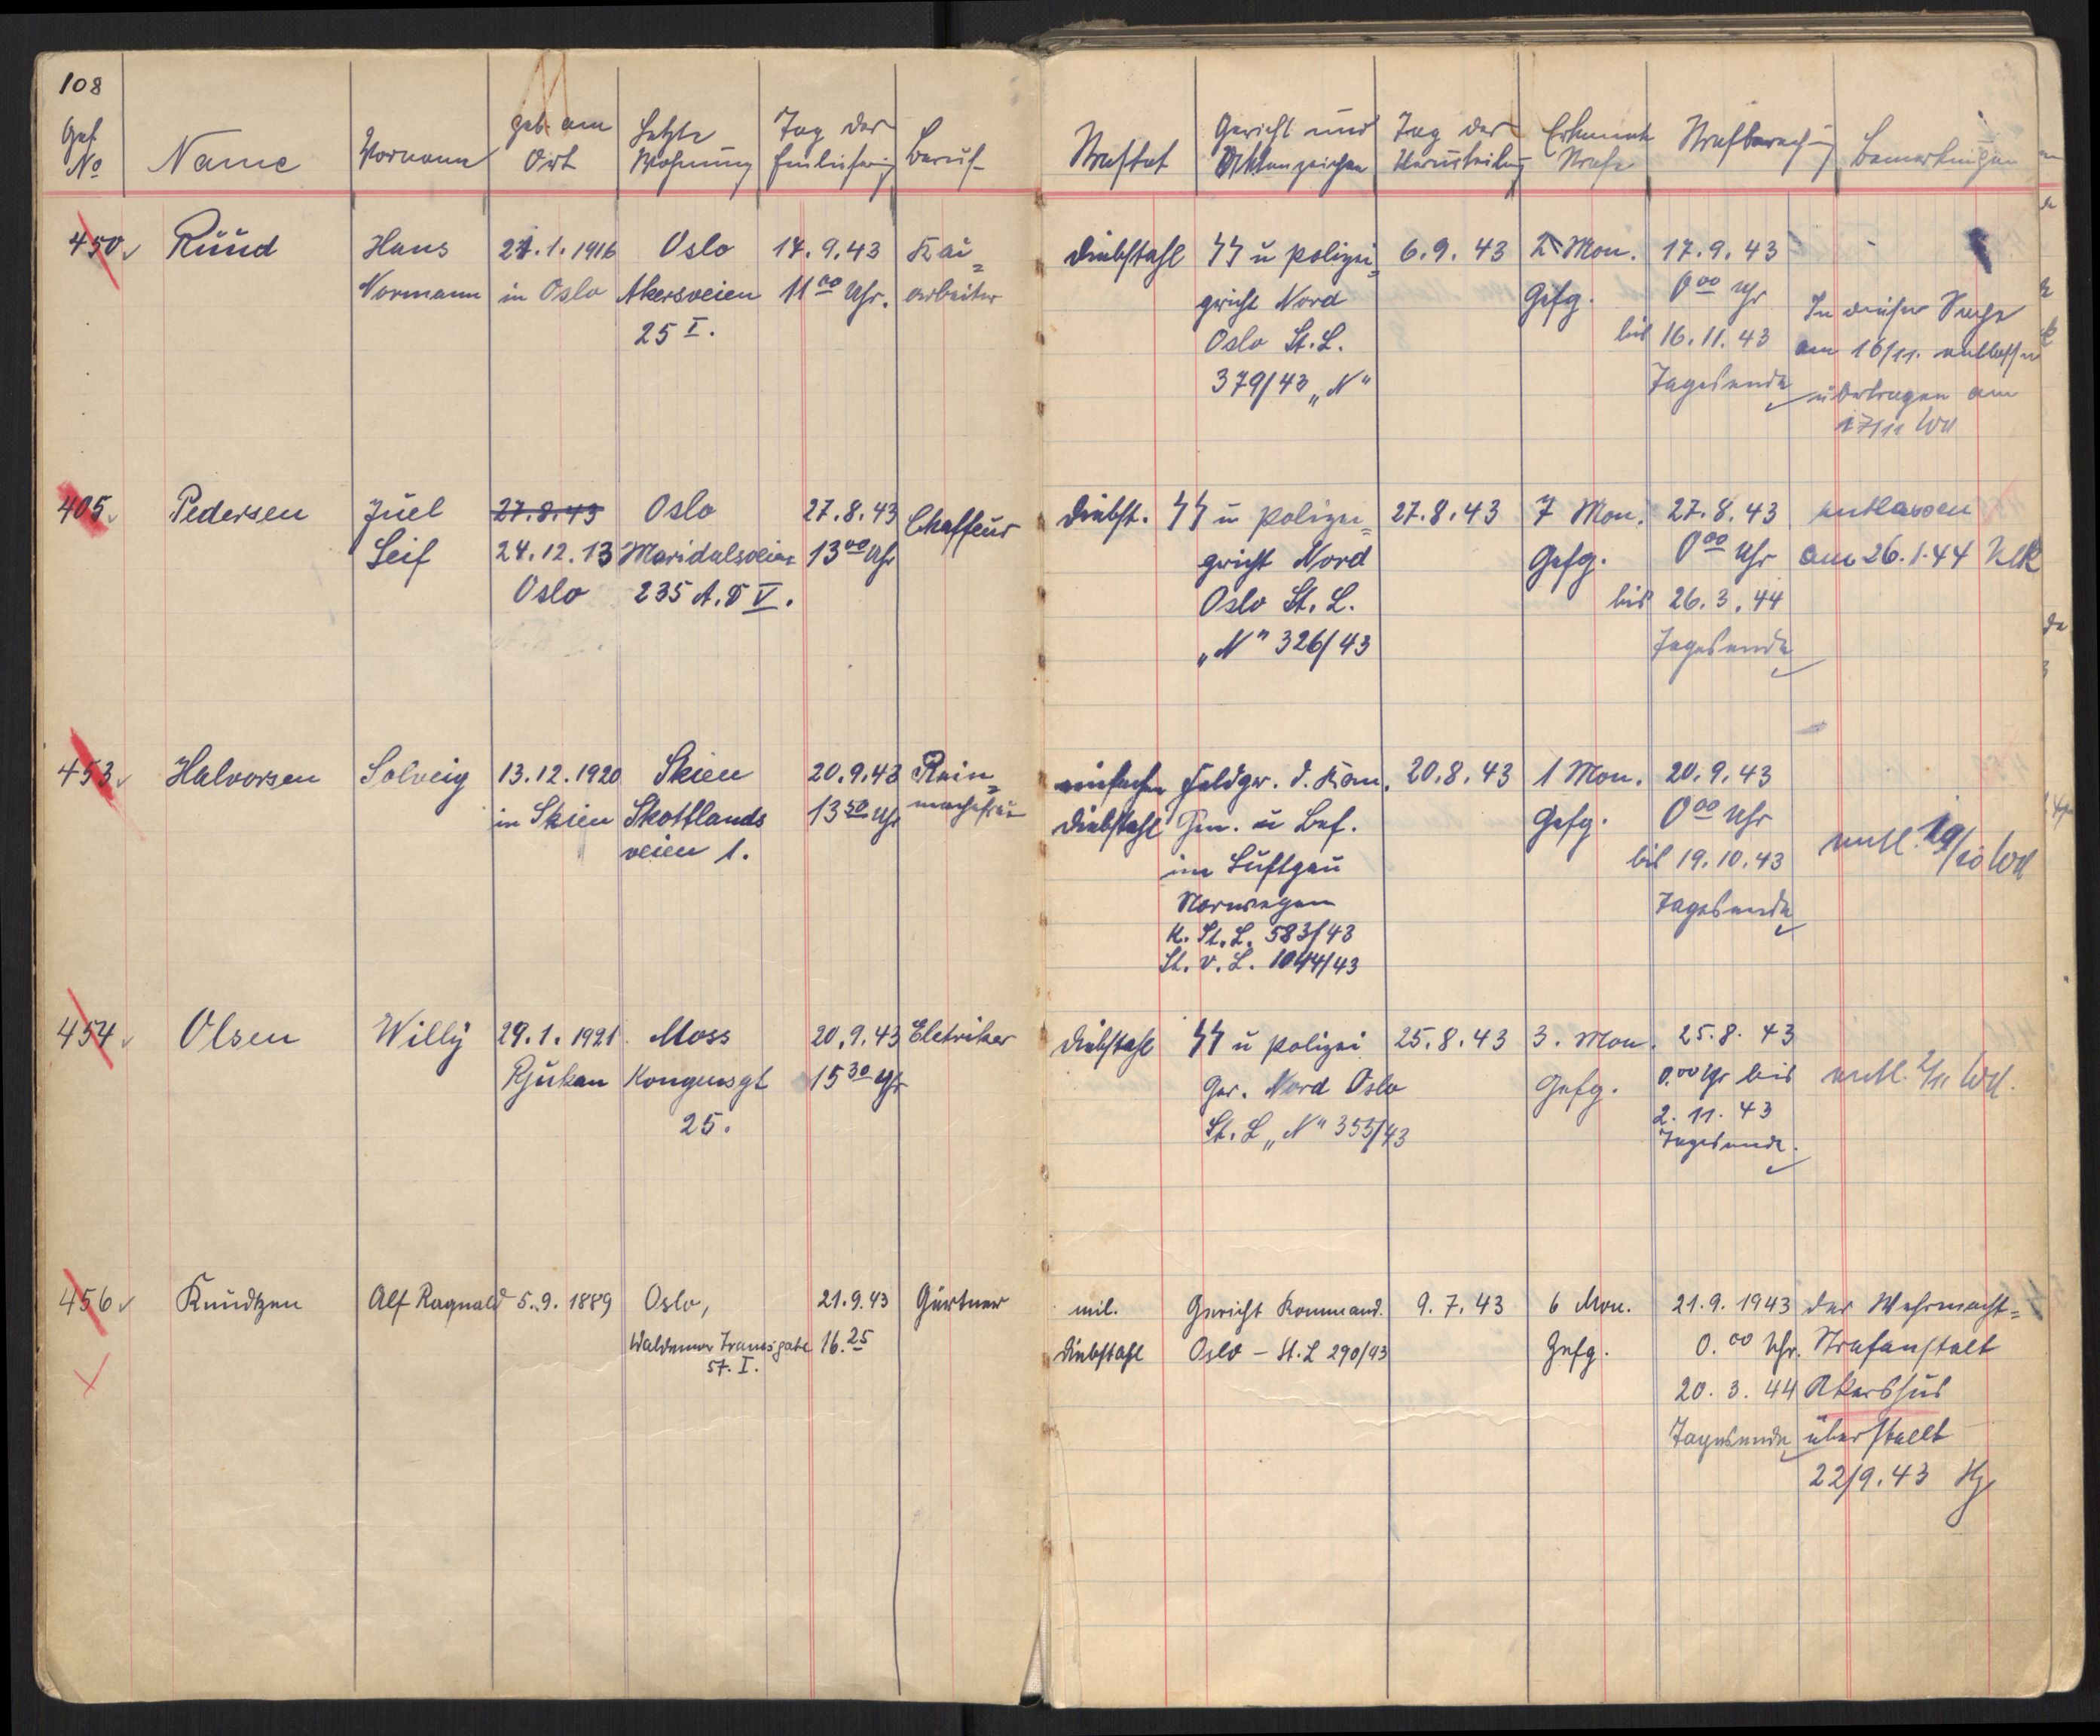 108
Gef. No
Name
Vorname
geb. am Ort
Letzte Wohnung
Tag der Einlieferung
Beruf
Straftat
Gericht und Aktenzeichen
Tag der Verurteilung
Erkannte Strafe
Strafberechng
Bemerkungen
450. Ruud Hans 21.1.1916 Oslo 17.9.43 Kai= Diebstahl SS u Polizei= 6.9.43 2 Mon. 17.9.43
Normann in Oslo Akersveien 11 00 Uhr. arbeiter gericht Nord Gefg. 0 00 Uhr In dieser Sache
25 I. Oslo St. L. bis 16.11.43 am 16/11. entlassen
379/43 „N" Tagesende übertragen am
17/11 Wd
405. Pedersen Juel 27.8.43 Oslo 27.8.43 Chaffeur Diebst. SS u Polizei= 27.8.43 7 Mon. 27.8.43 entlassen
Leif 24.12.13 Maridalsveien 13 00 Uhr gericht Nord Gefg. 0 00 Uhr am 26.1.44
Oslo 235 A. V. Oslo St. L. bis 26.3.44
„N" 326/43 Tagesende
453. Halvorsen Solveig 13.12.1920 Skien 20.9.43 Rein= einfacher Feldger. d. Kom. 20.8.43 1 Mon. 20.9.43
in Skien Skottlands 13 50 Uhr machefrau Diebstahl Gen. u Bef. Gefg. 0 00 Uhr
veien 1. im Luftgau bis 19.10.43 entl. 19/10 Wd
Norwegen Tagesende
K. St. L. 583/43
St. v. L. 1044/43
454. Olsen Willy 29.1.1921 Moss 20.9.43 Eletriker Diebstahl SS u Polizei 25.8.43 3. Mon. 25.8.43
Rjukan Kongensgt 15 30 Uhr Ger. Nord Oslo Gefg. 0.00 Uhr bis entl. 2/11 Wd.
25. St. L „N" 355/43 2.11.43
Tagesende.
456 Knudtzen Alf Ragnald 5.9.1889 Oslo, 21.9.43 Gärtner mil. Gericht Kommand. 9.7.43 6 Mon. 21.9.1943 der Wehrmacht=
Waldemar Tranesgate 16.25 Diebstahl Oslo – St. L 290/43 Gefg. 0.00 Uhr. Strafanstalt
57. I. 20.3.44 Akershus
Tagesende überstellt
22/9.43